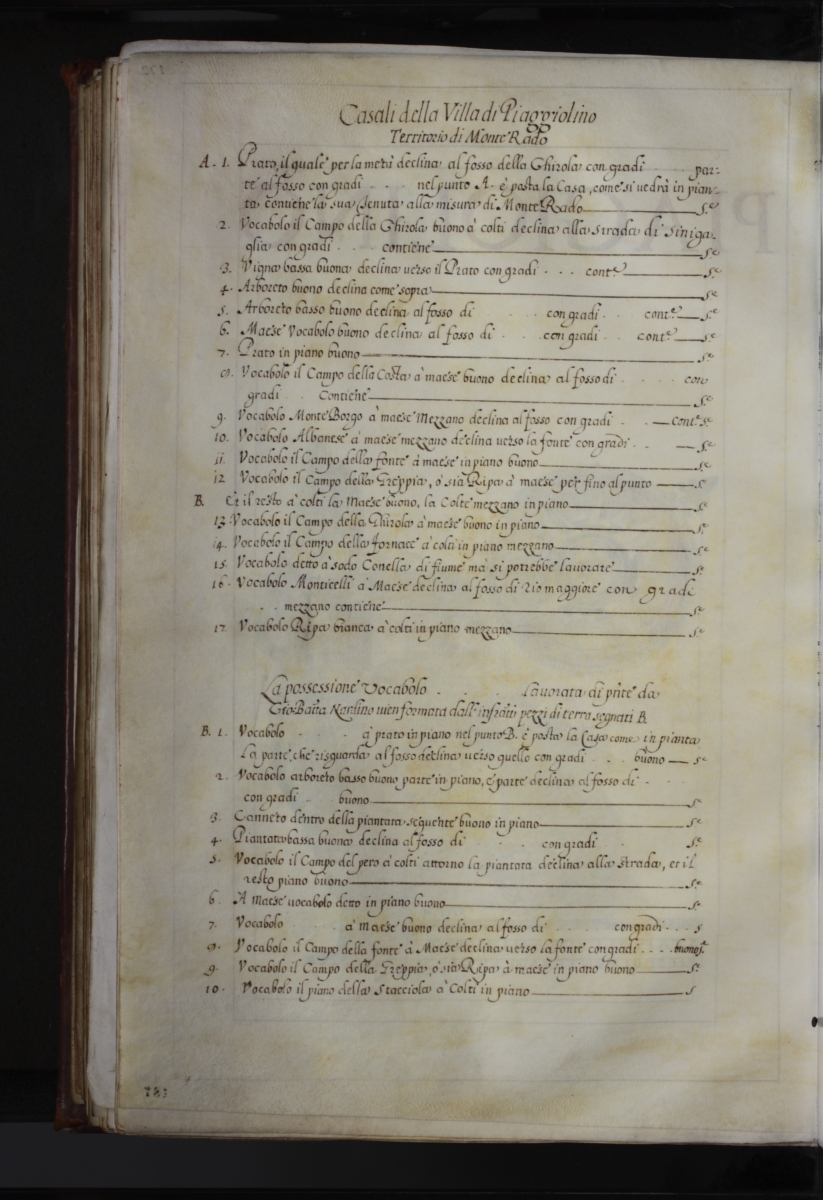 Casali della Villa di Piaggiolino
Territorio di Monte Rado
A. 1. Prato, il quale per la metà declina al fosso della Ghirola con gradi . . . par-
te al fosso con gradi . . . nel punto A. è posta la Casa, come si vedrà in pian-
ta contiene la sua tenuta alla misura di Monte Rado S.e
2. Vocabolo il Campo della Ghirola buono à colti declina alla strada di Siniga-
glia con gradi . . . contiene S.e
3. Vigna bassa buona declina verso il Prato con gradi . . . cont.e S.e
4. Arboreto buono declina come sopra S.e
5. Arboreto basso buono declina al fosso di . . . con gradi . . cont.e S.e
6. Maese Vocabolo buono declina al fosso di . . . con gradi . . cont.e S.e
7. Prato in piano buono S.e
8. Vocabolo il Campo della Costa à maese buono declina al fosso di . . . con
gradi . . Contiene S.e
9. Vocabolo Monte Borgo à maese Mezzano declina al fosso con gradi . . Cont.e S.e
10. Vocabolo Albanese à maese mezzano declina verso la fonte con gradi . . S.e
11. Vocabolo il Campo della fonte à maese in piano buono S.e
12 Vocabolo il Campo della Greppia, ò sia Ripa à maese per fino al punto S.e
B. Et il resto à colti la Maese buono, la Colte mezzano in piano S.e
13 Vocabolo il Campo della Ghirola à maese buono in piano S.e
14. Vocabolo il Campo della fornace à colti in piano mezzano S.e
15. Vocabolo detto à sodo Conella di fiume ma si potrebbe lavorare S.e
16. Vocabolo Monticelli à Maese declina al fosso di Rio maggiore con gradi
. . mezzano contiene S.e
17. Vocabolo Ripa bianca à colti in piano mezzano S.e
La possessione Vocabolo . . . Lavorata di pñte da
Gio Batta Nardino vien formata dall' infratti pezzi di terra segnati B.
B. 1. Vocabolo . . . à prato in piano nel punto B. è posta la Casa come in pianta
La parte, che risguarda al fosso declina verso quello con gradi . . . buono S.e
2. Vocabolo arboreto basso buono parte in piano, è parte declina al fosso di . .
con gradi . . buono S.e
3. Canneto dentro della piantata seguente buono in piano S.e
4. Piantata bassa buona declina al fosso di . . . con gradi . . S.e
5. Vocabolo il Campo del pero à colti attorno la piantata declina alla strada, et il
resto piano buono S.e
6. A Maese vocabolo detto in piano buono S.e
7. Vocabolo à maese buono declina al fosso di . . . con gradi . . . S
8. Vocabolo il Campo della fonte à Maese declina verso la fonte con gradi . . . buono S.e
9. Vocabolo il Campo della Greppia, ò sia Ripa à maese in piano buono S.e
10. Vocabolo il piano della Stacciola à Colti in piano S